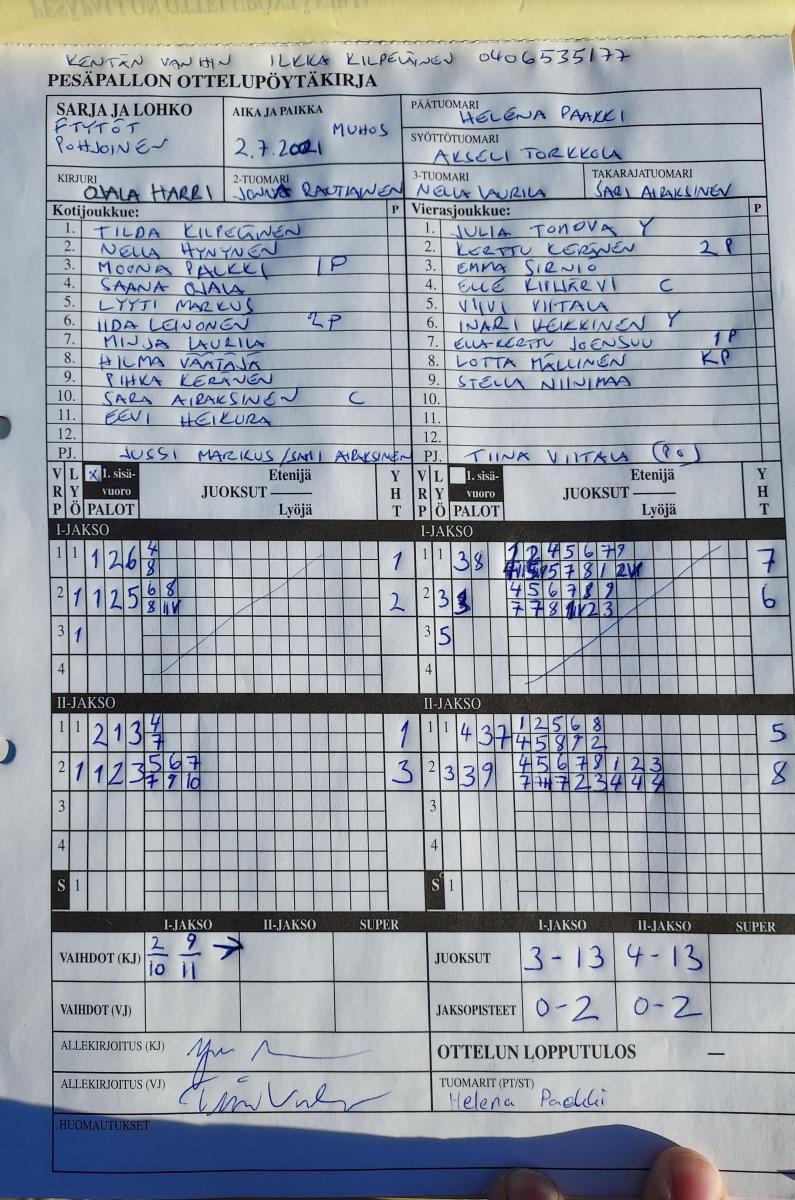 KENTÄN VANHIN ILKKA KILPELÄINEN 0406535177
PESÄPALLON OTTELUPÖYTÄKIRJA
SARJA JA LOHKO
FTYTÖT
POHJOINEN
AIKA JA PAIKKA
MUHOS
2.7.2021
PÄÄTUOMARI
HELENA PAAKKI
SYÖTTÖTUOMARI
AKSELI TORKKOLA
KIRJURI
OJALA HARRI
2-TUOMARI
JONNA RAUTIAINEN
3-TUOMARI
NELLA LAURILA
TAKARAJATUOMARI
SARI AIRAKSINEN
Kotijoukkue: P
1. TILDA KILPELÄINEN
2. NELLA HYNYNEN
3. MOONA PALKKI 1P
4. SAANA OJALA
5. LYYTI MARKUS
6. IIDA LEINONEN 2P
7. MINJA LAURILA
8. HILMA VÄÄTÄJÄ
9. PIHKA KERÄNEN
10. SARA AIRAKSINEN C
11. EEVI HEIKURA
12.
PJ. JUSSI MARKUS/SAMI AIRAKSINEN
Vierasjoukkue: P
1. JULIA TONOVA Y
2. KERTTU KERÄNEN 2P
3. EMMA SIRNIÖ
4. ELLE KIILJÄRVI C
5. VIIVI VIITALA
6. INARI HEIKKINEN Y
7. ELLA-KERTTU JOENSUU 1P
8. LOTTA MÄLLINEN KP
9. STELLA NIINIMAA
10.
11.
12.
PJ. TIINA VIITALA
V R P L Y Ö X 1. sisävuoro PALOT Etenijä JUOKSUT Lyöjä Y H T
V R P L Y Ö 1. sisävuoro PALOT Etenijä JUOKSUT Lyöjä Y H T
I-JAKSO
1 1 1 2 6 4 1
8
2 1 1 2 5 6 8 2
8 IIV
3 1
4
I-JAKSO
1 1 3 8 1 2 4 5 6 7 9 7
5 7 8 1
2 3 4 5 6 7 8 9 6
7 7 8 2 3
3 5
4
II-JAKSO
1 1 2 1 3 4 1
7
2 1 1 2 3 5 6 7 3
7 9 10
3
4
S 1
II-JAKSO
1 1 4 3 7 1 2 5 6 8 5
4 5 8 9 2
2 3 3 9 4 5 6 7 8 1 2 3 8
7 7 2 3 4 4 4
3
4
S 1
I-JAKSO II-JAKSO SUPER
VAIHDOT (KJ) 2/10 9/11 →
VAIHDOT (VJ)
I-JAKSO II-JAKSO SUPER
JUOKSUT 3-13 4-13
JAKSOPISTEET 0-2 0-2
ALLEKIRJOITUS (KJ)
ALLEKIRJOITUS (VJ)
OTTELUN LOPPUTULOS —
TUOMARIT (PT/ST)
Helena Paakki
HUOMAUTUKSET